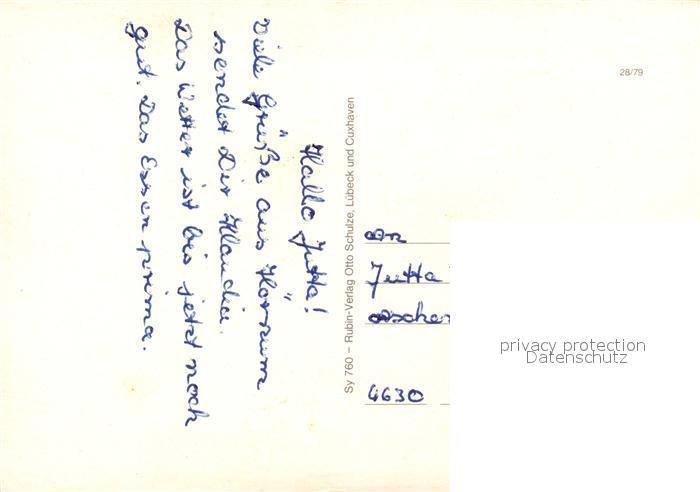 Hallo Jutta!
Viele Grüße aus Hörnum
sendet Dir Klaudia.
Das Wetter ist bis jetzt noch
gut. Das Essen prima.
Sy 760 – Rubin-Verlag Otto Schulze, Lübeck und Cuxhaven
28/79
An
Jutta
4630
privacy protection
Datenschutz